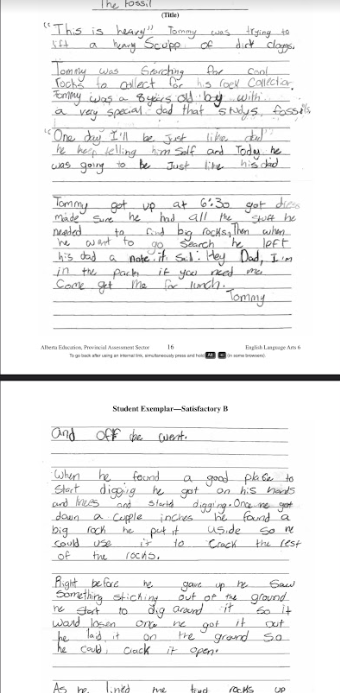 The Fossil
(Title)
"This is heavy" Tommy was trying to
lift a heavy Scupp of dirt clomps.
Tommy was Serching for cool
rocks to collect for his rock Collection.
Tommy was a 8 years old boy with
a very special dad that studys fossils
"One day I'll be just like dad"
he keep telling him self and Today he
was going to be Just like his dad
Tommy got up at 6:30 got dress
made sure he had all the stuff he
needed to find big rocks, Then when
he want to go search he left
his dad a note it said: Hey Dad, I'm
in the park if you need me
Come get me for lunch.
Tommy
Alberta Education, Provincial Assessment Sector 16 English Language Arts 6
To go back after using an internal link, simultaneously press and hold Alt (in some browsers).
Student Exemplar—Satisfactory B
and off he went.
When he found a good place to
Start digging he got on his hands
and knees and started digging. Once he got
down a cupple inches he found a
big rock he put it uside so he
could use it to crack the rest
of the rocks.
Right before he gave up he saw
Something sticking out of the ground
he start to dig around it so it
would losen once he got it out
he laid it on the ground so
he could crack it open.
As he lined the rocks up